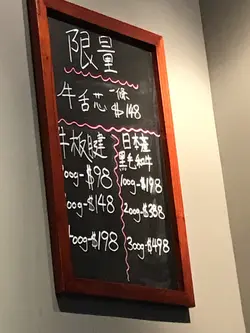 限量
牛舌芯一條$148
牛板腱
00g-$98
00g-$148
600g-$198
日本產
黑毛和牛
100g-$198
200g-$388
300g-$498